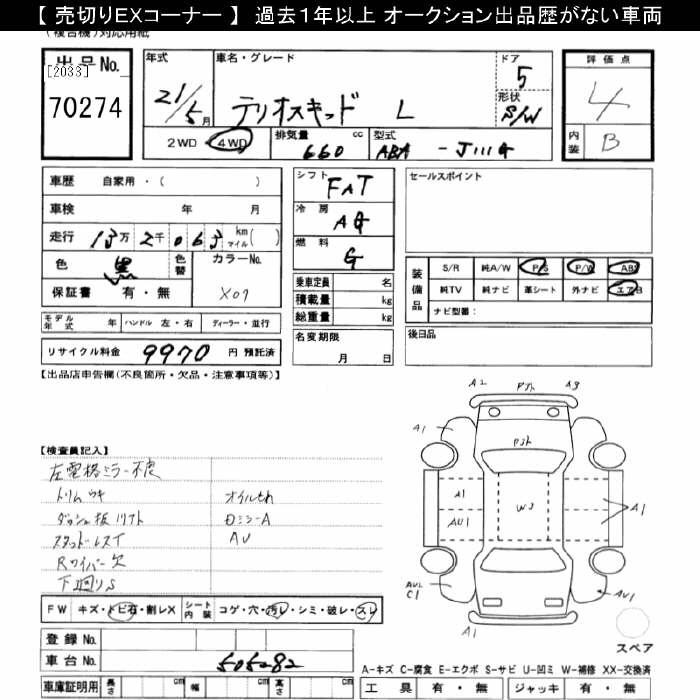 【 売切りEXコーナー 】 過去１年以上 オークション出品歴がない車両
(複合機)対応用紙
出品No.
[2033]
70274
年式
21/5月
車名・グレード
テリオスキッド L
ドア
5
形状
S/W
評価点
4
内装
B
2WD・4WD
排気量 cc
660
型式
ABA - J111G
車歴 自家用・( )
車検 年 月
走行 13万 2千 063 km マイル( )
色 黒 色替 カラーNo.
X07
保証書 有・無
モデル年式 年 ハンドル 左・右 ディーラー・並行
リサイクル料金 9970 円 預託済
シフト
FAT
冷房
AG
燃料
G
乗車定員 名
積載量 kg
総重量 kg
名変期限
月 日
セールスポイント
装備品
S/R 純A/W P/S P/W ABS
純TV 純ナビ 革シート 外ナビ エアB
ナビ型番：
後日品
【出品店申告欄(不良箇所・欠品・注意事項等)】
【検査員記入】
左電格ミラー不良
トリムウキ オイルもれ
ダッシュ板リフト
スタッドレス AU
Rワイパー欠
下廻りS
A2 P小 A3
A1
P小
A1 W3 A1
AU1
AU2
C1
AU1
A1
スペア
FW キズ・トビ石・割レX シート内装 コゲ・穴・汚レ・シミ・破レ・スレ
登録No.
車台No. 505282
車庫証明用 長さ cm 幅 cm 高さ cm
A-キズ C-腐食 E-エクボ S-サビ U-凹ミ W-補修 XX-交換済
工具 有・無 ジャッキ 有・無